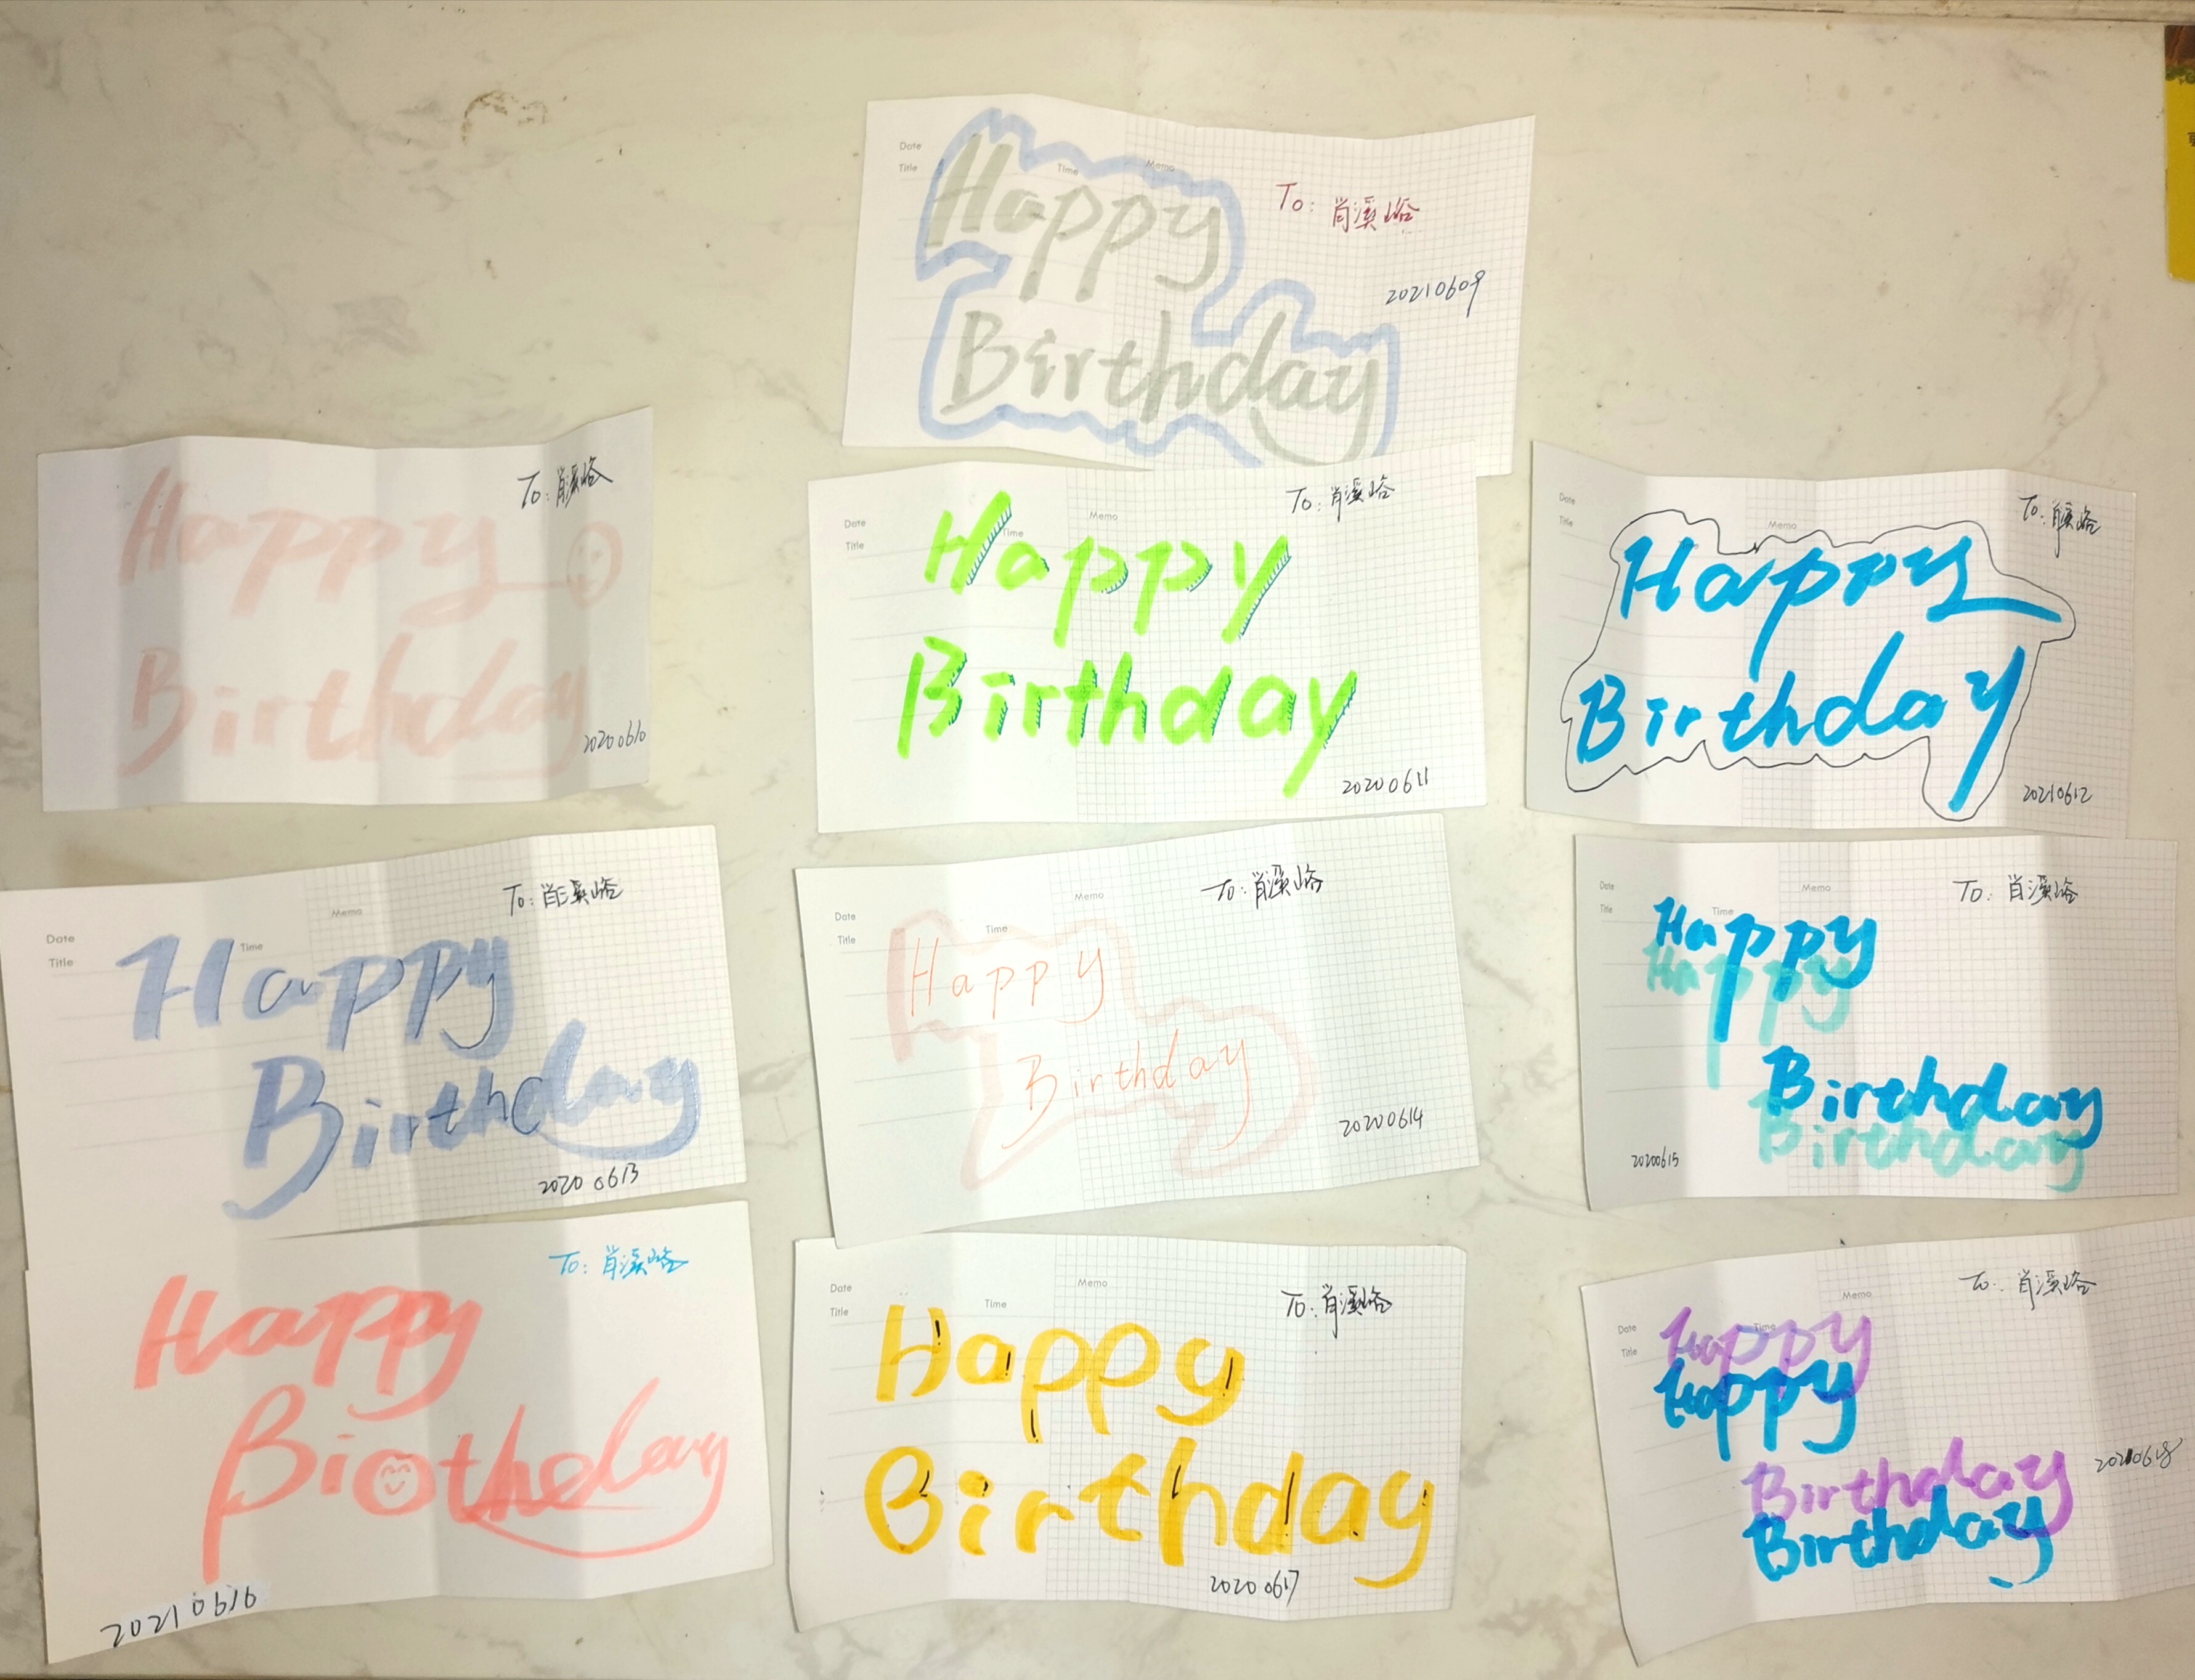 Date
Title
Time
Memo
Happy
Birthday
To: 肖溪峪
20210609
Happy
Birthday
To: 肖溪峪
20200610
Date
Title
Time
Memo
To: 肖溪峪
Happy
Birthday
20200611
Date
Title
Memo
To: 肖溪峪
Happy
Birthday
20210612
Date
Title
Time
Memo
To: 肖溪峪
Happy
Birthday
20200613
Date
Title
Time
Memo
To: 肖溪峪
Happy
Birthday
20200614
Date
Title
Time
Memo
To: 肖溪峪
Happy
Happy
Birthday
Birthday
20200615
To: 肖溪峪
Happy
Biothday
20210616
Date
Title
Time
Memo
To: 肖溪峪
Happy
Birthday
20200617
Date
Title
Time
Memo
To: 肖溪峪
Happy
Happy
Birthday
Birthday
20210618